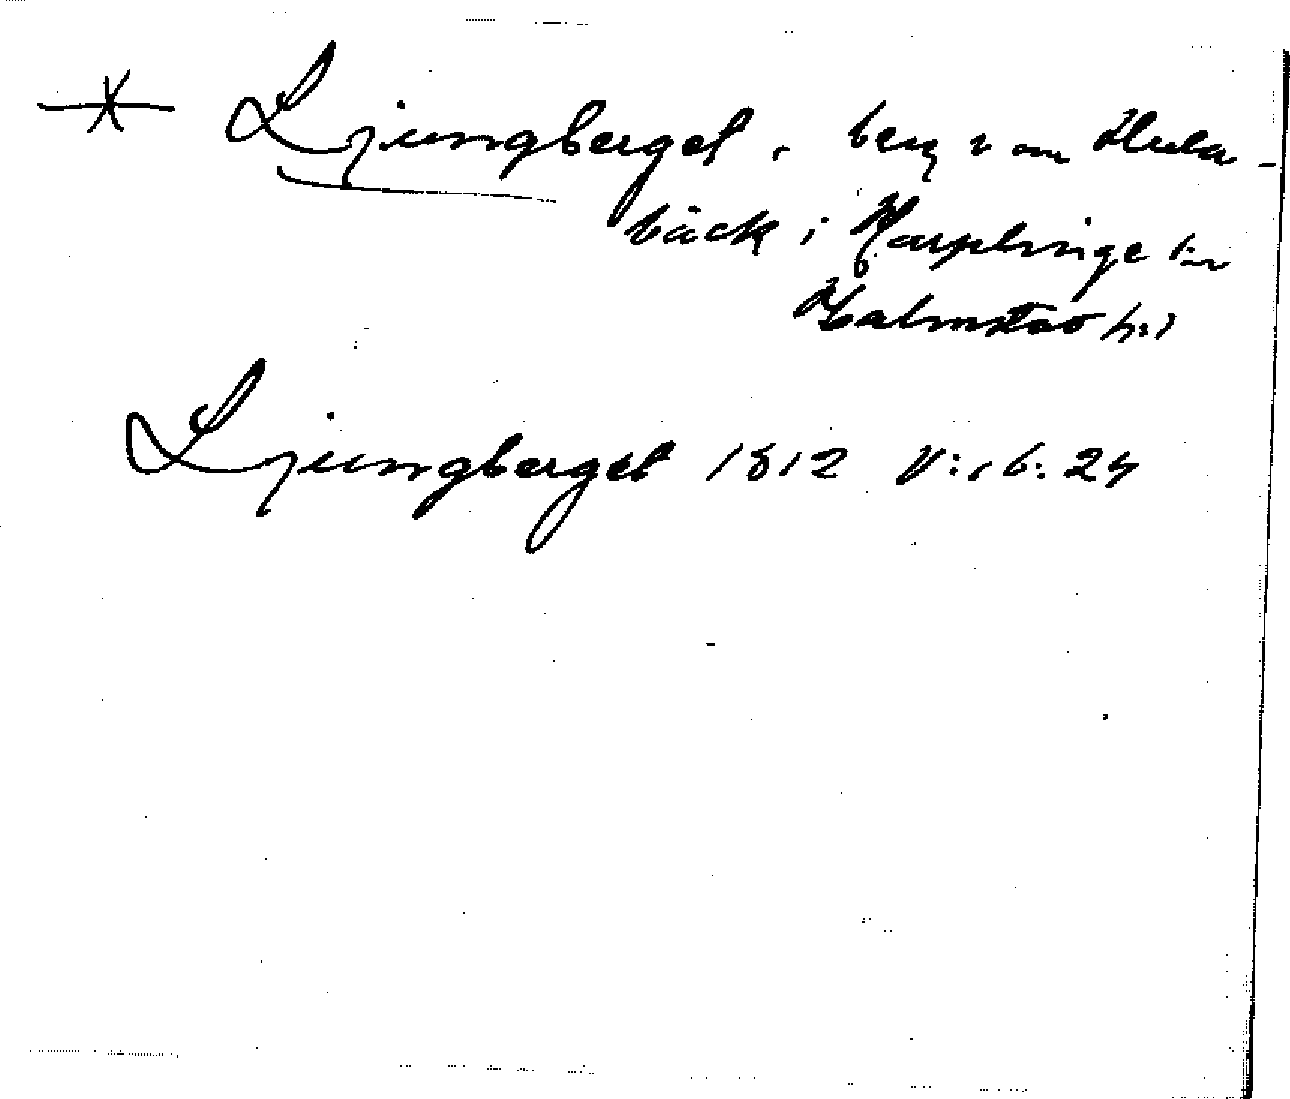 * Ljungberget, berg v om Hula-
bäck i Harplinge sn
Halmstad hd
Ljungberget 1812 V: 16: 24